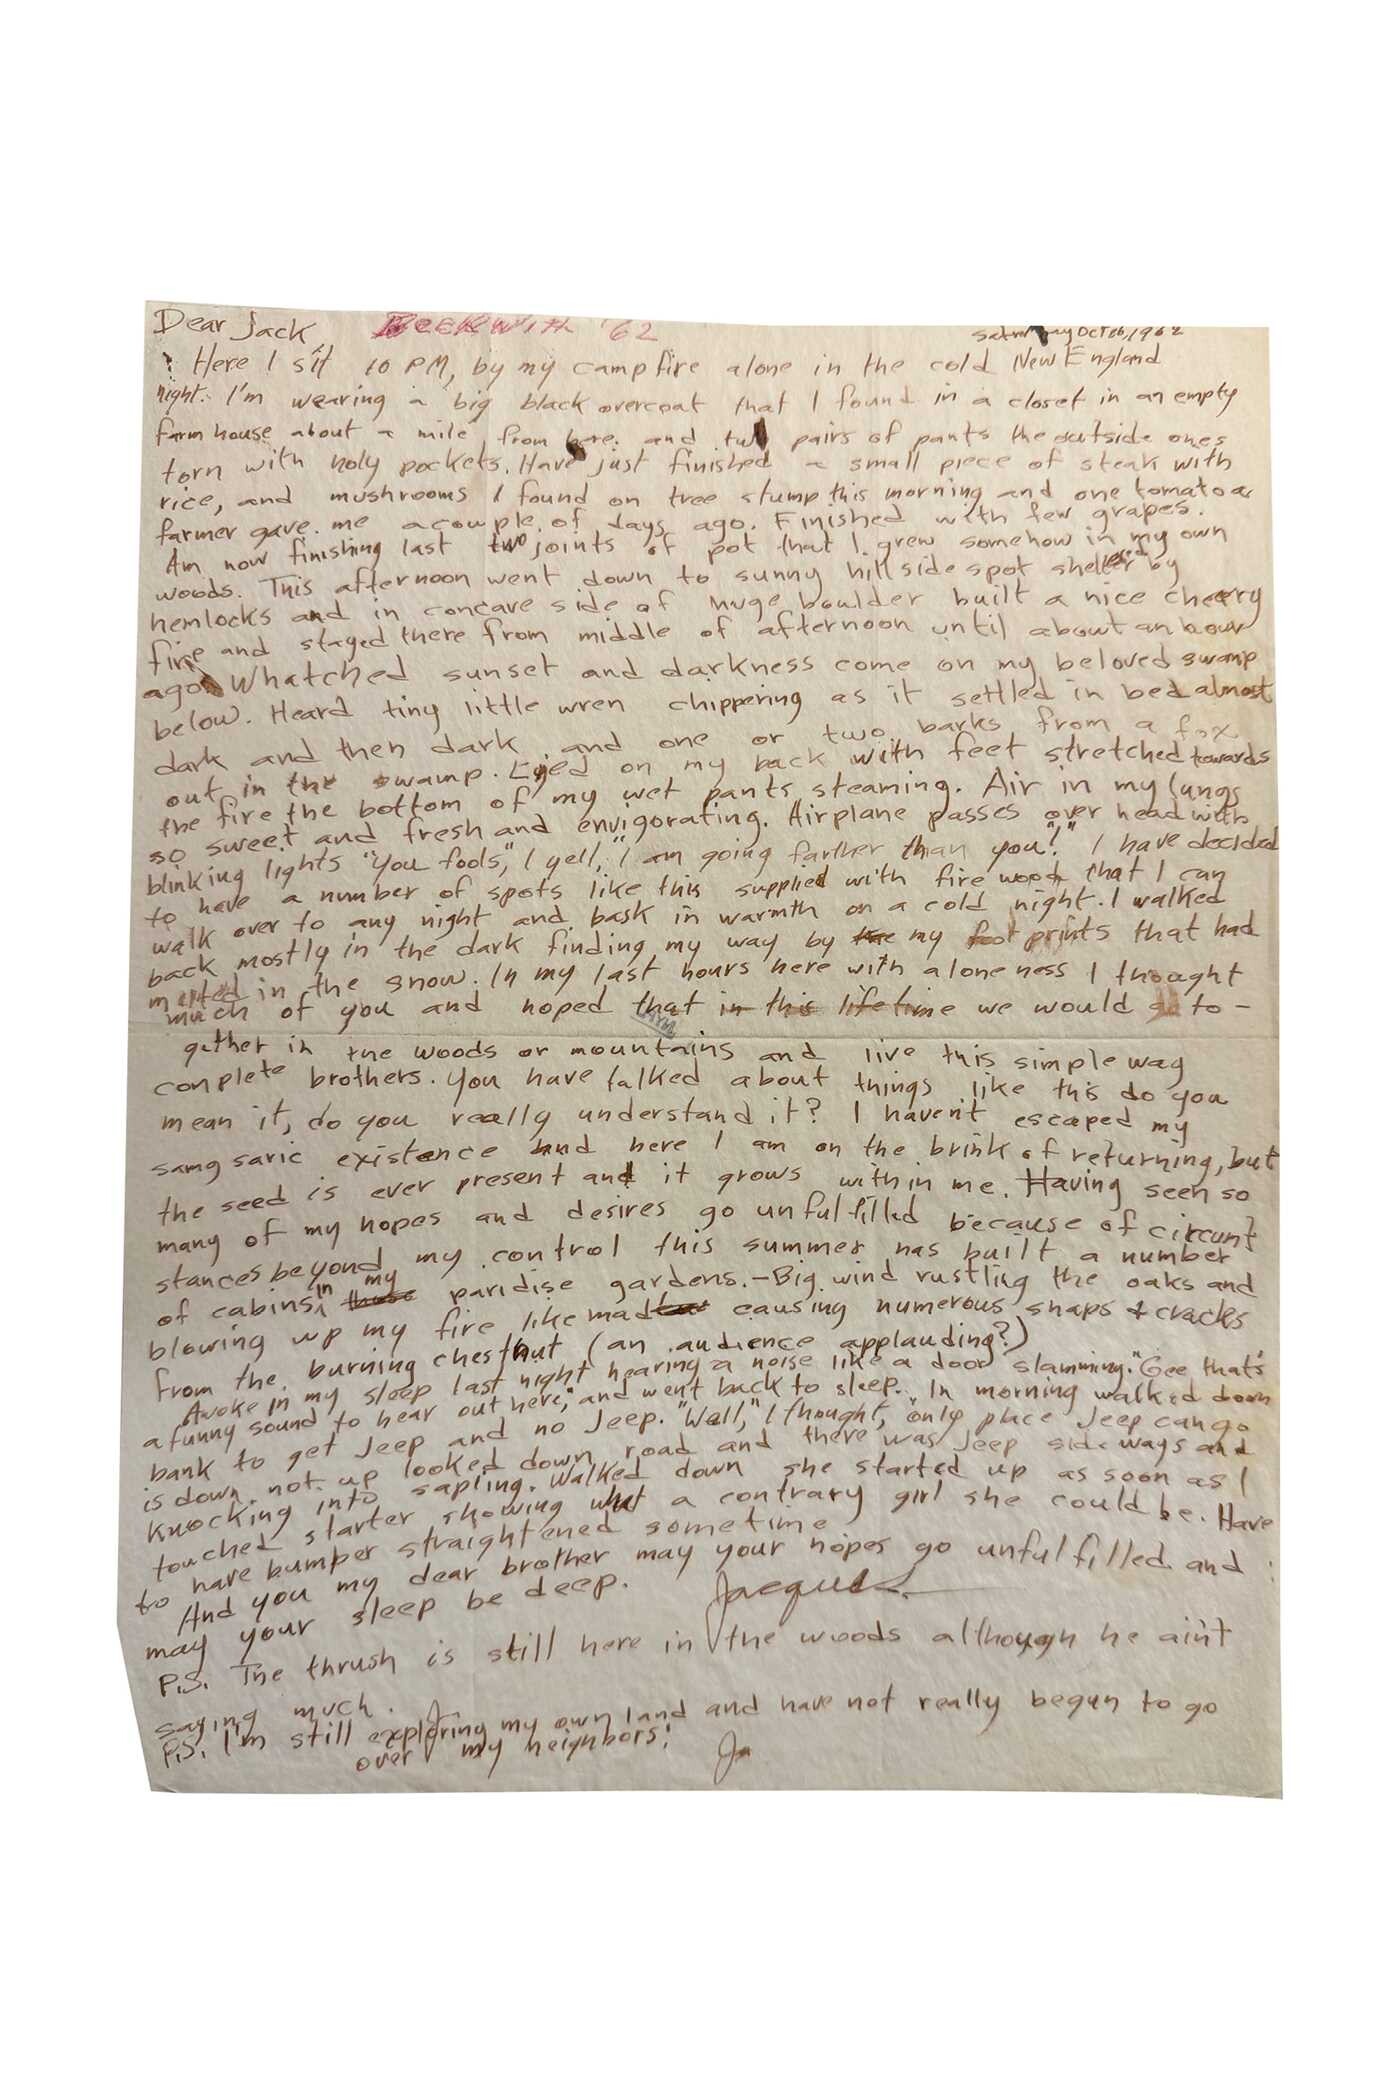 Dear Jack BEEKWITH '62 Saturday Oct 26, 1962
Here I sit 10 PM, by my campfire alone in the cold New England
night. I'm wearing a big black overcoat that I found in a closet in an empty
farm house about a mile from here. and two pairs of pants the outside ones
torn with holy pockets. Have just finished a small piece of steak with
rice, and mushrooms I found on tree stump this morning and one tomato a
farmer gave me a couple of days ago. Finished with few grapes.
Am now finishing last two joints of pot that I grew somehow in my own
woods. This afternoon went down to sunny hillside spot sheltered by
hemlocks and in concave side of huge boulder built a nice cheery
fire and stayed there from middle of afternoon until about an hour
ago. Whatched sunset and darkness come on my beloved swamp
below. Heard tiny little wren chippering as it settled in bed almost
dark and then dark and one or two barks from a fox
out in the swamp. Lyed on my back with feet stretched towards
the fire the bottom of my wet pants steaming. Air in my lungs
so sweet and fresh and envigorating. Airplane passes over head with
blinking lights "You fools," I yell, "I am going farther than you!" I have decided
to have a number of spots like this supplied with fire wood that I can
walk over to any night and bask in warmth on a cold night. I walked
back mostly in the dark finding my way by the my foot prints that had
melted in the snow. In my last hours here with aloneness I thought
much of you and hoped that in this lifetime we would go to-
gether in the woods or mountains and live this simple way
complete brothers. You have talked about things like this do you
mean it, do you really understand it? I haven't escaped my
samgsaric existence and here I am on the brink of returning, but
the seed is ever present and it grows within me. Having seen so
many of my hopes and desires go unfulfilled because of circum
stances beyond my control this summer has built a number
of cabins in my paridise gardens. - Big wind rustling the oaks and
blowing up my fire like mad causing numerous snaps & cracks
from the burning chestnut (an audience applauding?)
Awoke in my sleep last night hearing a noise like a door slamming. "Gee that's
a funny sound to hear out here," and went back to sleep. In morning walked down
bank to get Jeep and no Jeep. "Well," I thought, "only place Jeep can go
is down not up looked down road and there was Jeep sideways and
knocking into sapling. Walked down she started up as soon as I
touched starter showing what a contrary girl she could be. Have
to have bumper straightened sometime
And you my dear brother may your hopes go unfulfilled and
may your sleep be deep. Jacques
P.S. The thrush is still here in the woods although he ain't
saying much. J
P.S. I'm still exploring my own land and have not really begun to go
over my neighbors! Ja